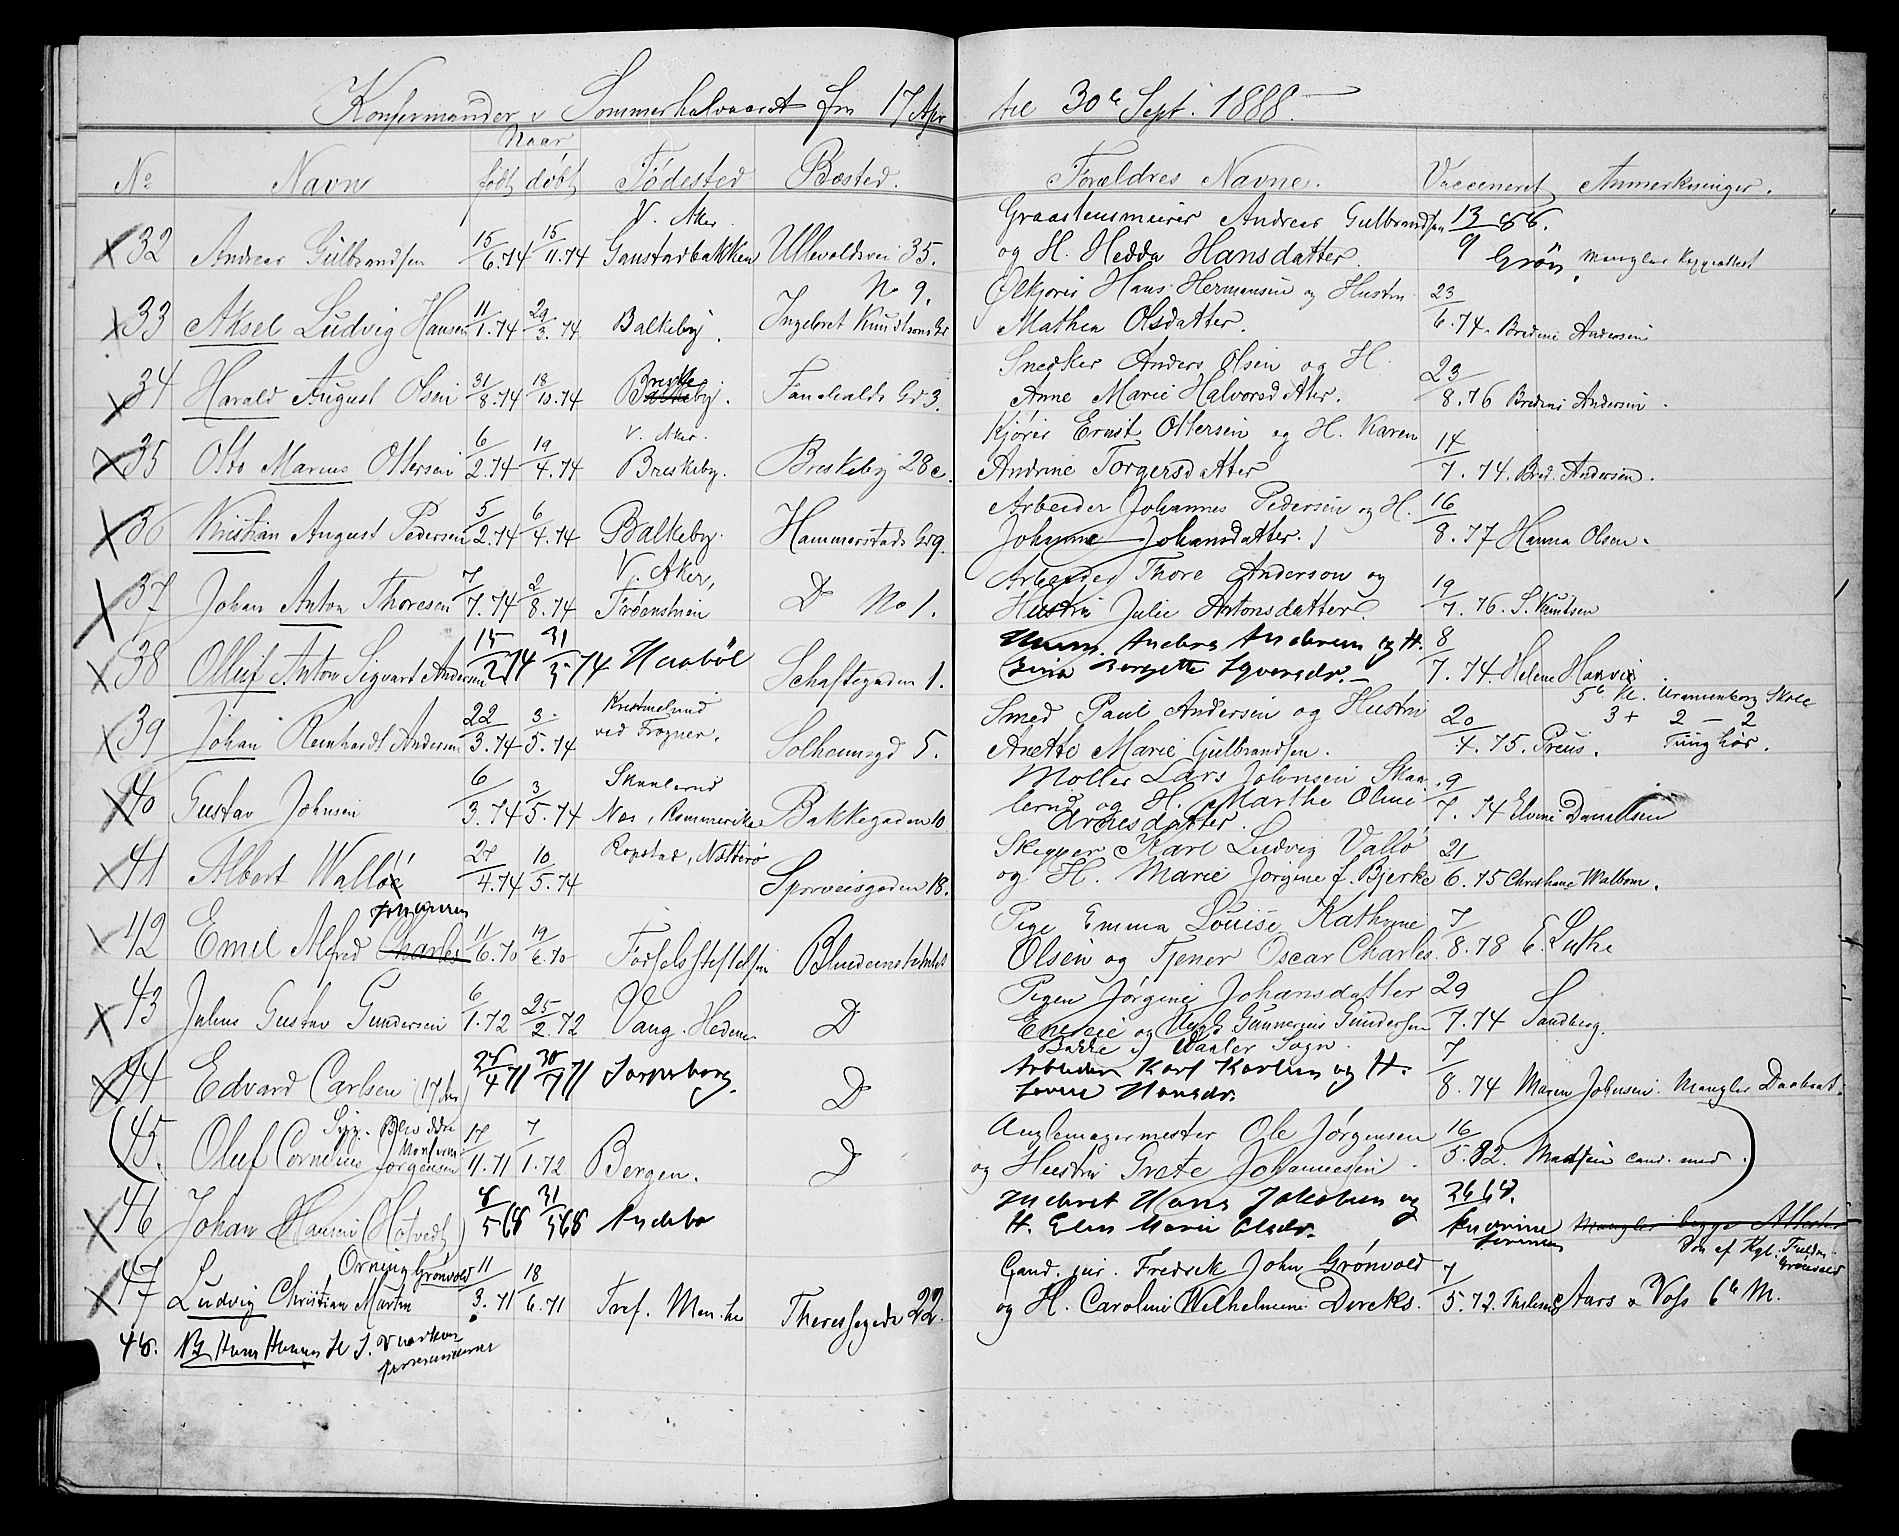 Konfermander v Sommerhalvaaret fra 17 Apr til 30te Sept. 1888.
Naar
No Navn født døbt Fødested Bosted. Forældres Navne. Vaccineret Anmerkninger.
V. Aker. Graastensmurer Andreas Gulbrandsen 13/9 86.
32 Andreas Gulbrandsen 15/6.74 15/11.74 Gaustadbakken Ullevoldsvei 35. og H. Hedda Hansdatter. Grøn. Mangler Koppeattest
No 9. Ølkjører Hans Hermansen og Hustru
33 Aksel Ludvig Hansen 11/1.74 29/3.74 Balkeby. Ingebret Knudsens Gd Mathea Olsdatter. 23/6.74. Bredine Andersen
Snedker Anders Olsen og H.
34 Harald August Olsen 31/8.74 18/10.74 Briskeby. Fauchalds Gd 3. Anne Marie Halvorsdatter. 23/8.76 Bredine Andersen.
V. Aker. Kjører Ernst Ottersen og H. Karen
35 Otto Marius Ottersen 6/2.74 19/4.74 Breskeby. Breskeby 28c. Andrine Torgersdatter 14/7.74. Bred. Andersen.
Arbeider Johannes Pedersen og H.
36 Kristian August Pedersen 5/2.74 6/4.74 Balkeby. Hammerstads Gd 9. Johanne Johansdatter. 16/8.77 Hanna Olsen.
V. Aker, Arbeider Thore Anderson og
37 Johan Anton Thoresen 7/7.74 2/8.74 Frøensveien D No 1. Hustru Julie Antonsdatter. 19/7.76. S. Knutsen
Anders Andersen og H.
38 Oluf Anton Sigvart Andersen 15/2 74 31/5.74 Haabøl Schaftegaden 1. 8/7.74. Helene Hanvig.
5te Kl. Uranienborg Skole
Kristinelund Smed Paul Andersen og Hustru 3+ 2 - 2
39 Johan Reinhardt Andersen 22/3.74 3/5.74 ved Frogner. Solheimsgd 5. Anette Marie Gulbrandsen. 20/4.75. Preus. Tunghør.
Skaalerud Møller Lars Johnsen Skaa-
40 Gustav Johnsen 6/3.74 3/5.74 Nes, Rommerike Bakkegaden 10 lerud og H. Marthe Oline 9/7.74 Elvine Danielsen
Arnesdatter.
Ropstad, Nøtterø Skipper Karl Ludvig Vallø
41 Albert Walløe 27/4.74 10/5.74 Sporveisgaden 18. og H. Marie Jørgine f. Bjerke 21/6.75 Christiane Walbom.
Johansen Pige Emma Louise Kathrine
42 Emil Alfred Charles 11/6.70 19/6.70 Fødselsstiftelsen Blindeinstitutet Olsen og Tjener Oscar Charles. 7/8.78 E. Luthe
Pigen Jørgine Johansdatter
43 Julius Gustav Gundersen 6/1.72 25/2.72 Vang. Hedem. D Eneeie og Ungk Gunnerius Gundersen 29/7.74 Sandberg.
Bakke i Vaaler Sogn.
Arbeider Karl Karlsen og H.
44 Edvard Carlsen (17 Aar) 24/4 71 30/7 71 Sarpsborg. D Hansdr. 7/8.74 Maren Johnsen. Mangler Daabsat.
Auglemagermester Ole Jørgensen
(45. Oluf Cornelius Jørgensen 17/11.71 7/1.72 Bergen. D og Hustru Grete Johannesen. 16/5.82. Madsen cand. med.)
Inderst Hans Jakobsen og 26 68.
46 Johan Hansen (Hotvedt) 8/5 68 31/5 68 H. Elen Marie Olsdr. Mangler begge Attester
Orning Grønvold Cand. jur. Fredrik John Grønvold Søn af Kgl. Fuldm. Grønvold
47 Ludvig Christian Martin 11/3.71 18/6.71 Tref. Men.he Theresegade 22. og H. Caroline Wilhelmine Dircks. 7/5.72. Aars & Voss 6te M.
48. NB Hans